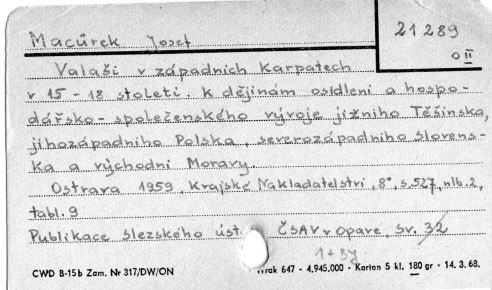 Macůrek Josef
21289
O II
Valaši v západních Karpatech
v 15-18 století. K dějinám osídlení a hospo-
dářsko-společenského vývoje jižního Těšínska,
jihozápadního Polska, severozápadního Slovens-
ka a východní Moravy.
Ostrava 1959, Krajské Nakladatelství, 8°, s.527, nlb.2,
tabl.9
Publikace Slezského úst ČSAV v Opave, Sv. 32
1+3y
CWD B-15b Zam. Nr 317/DW/ON Wrak 647 - 4.945.000 - Karton 5 kl. 180 gr - 14. 3. 68.